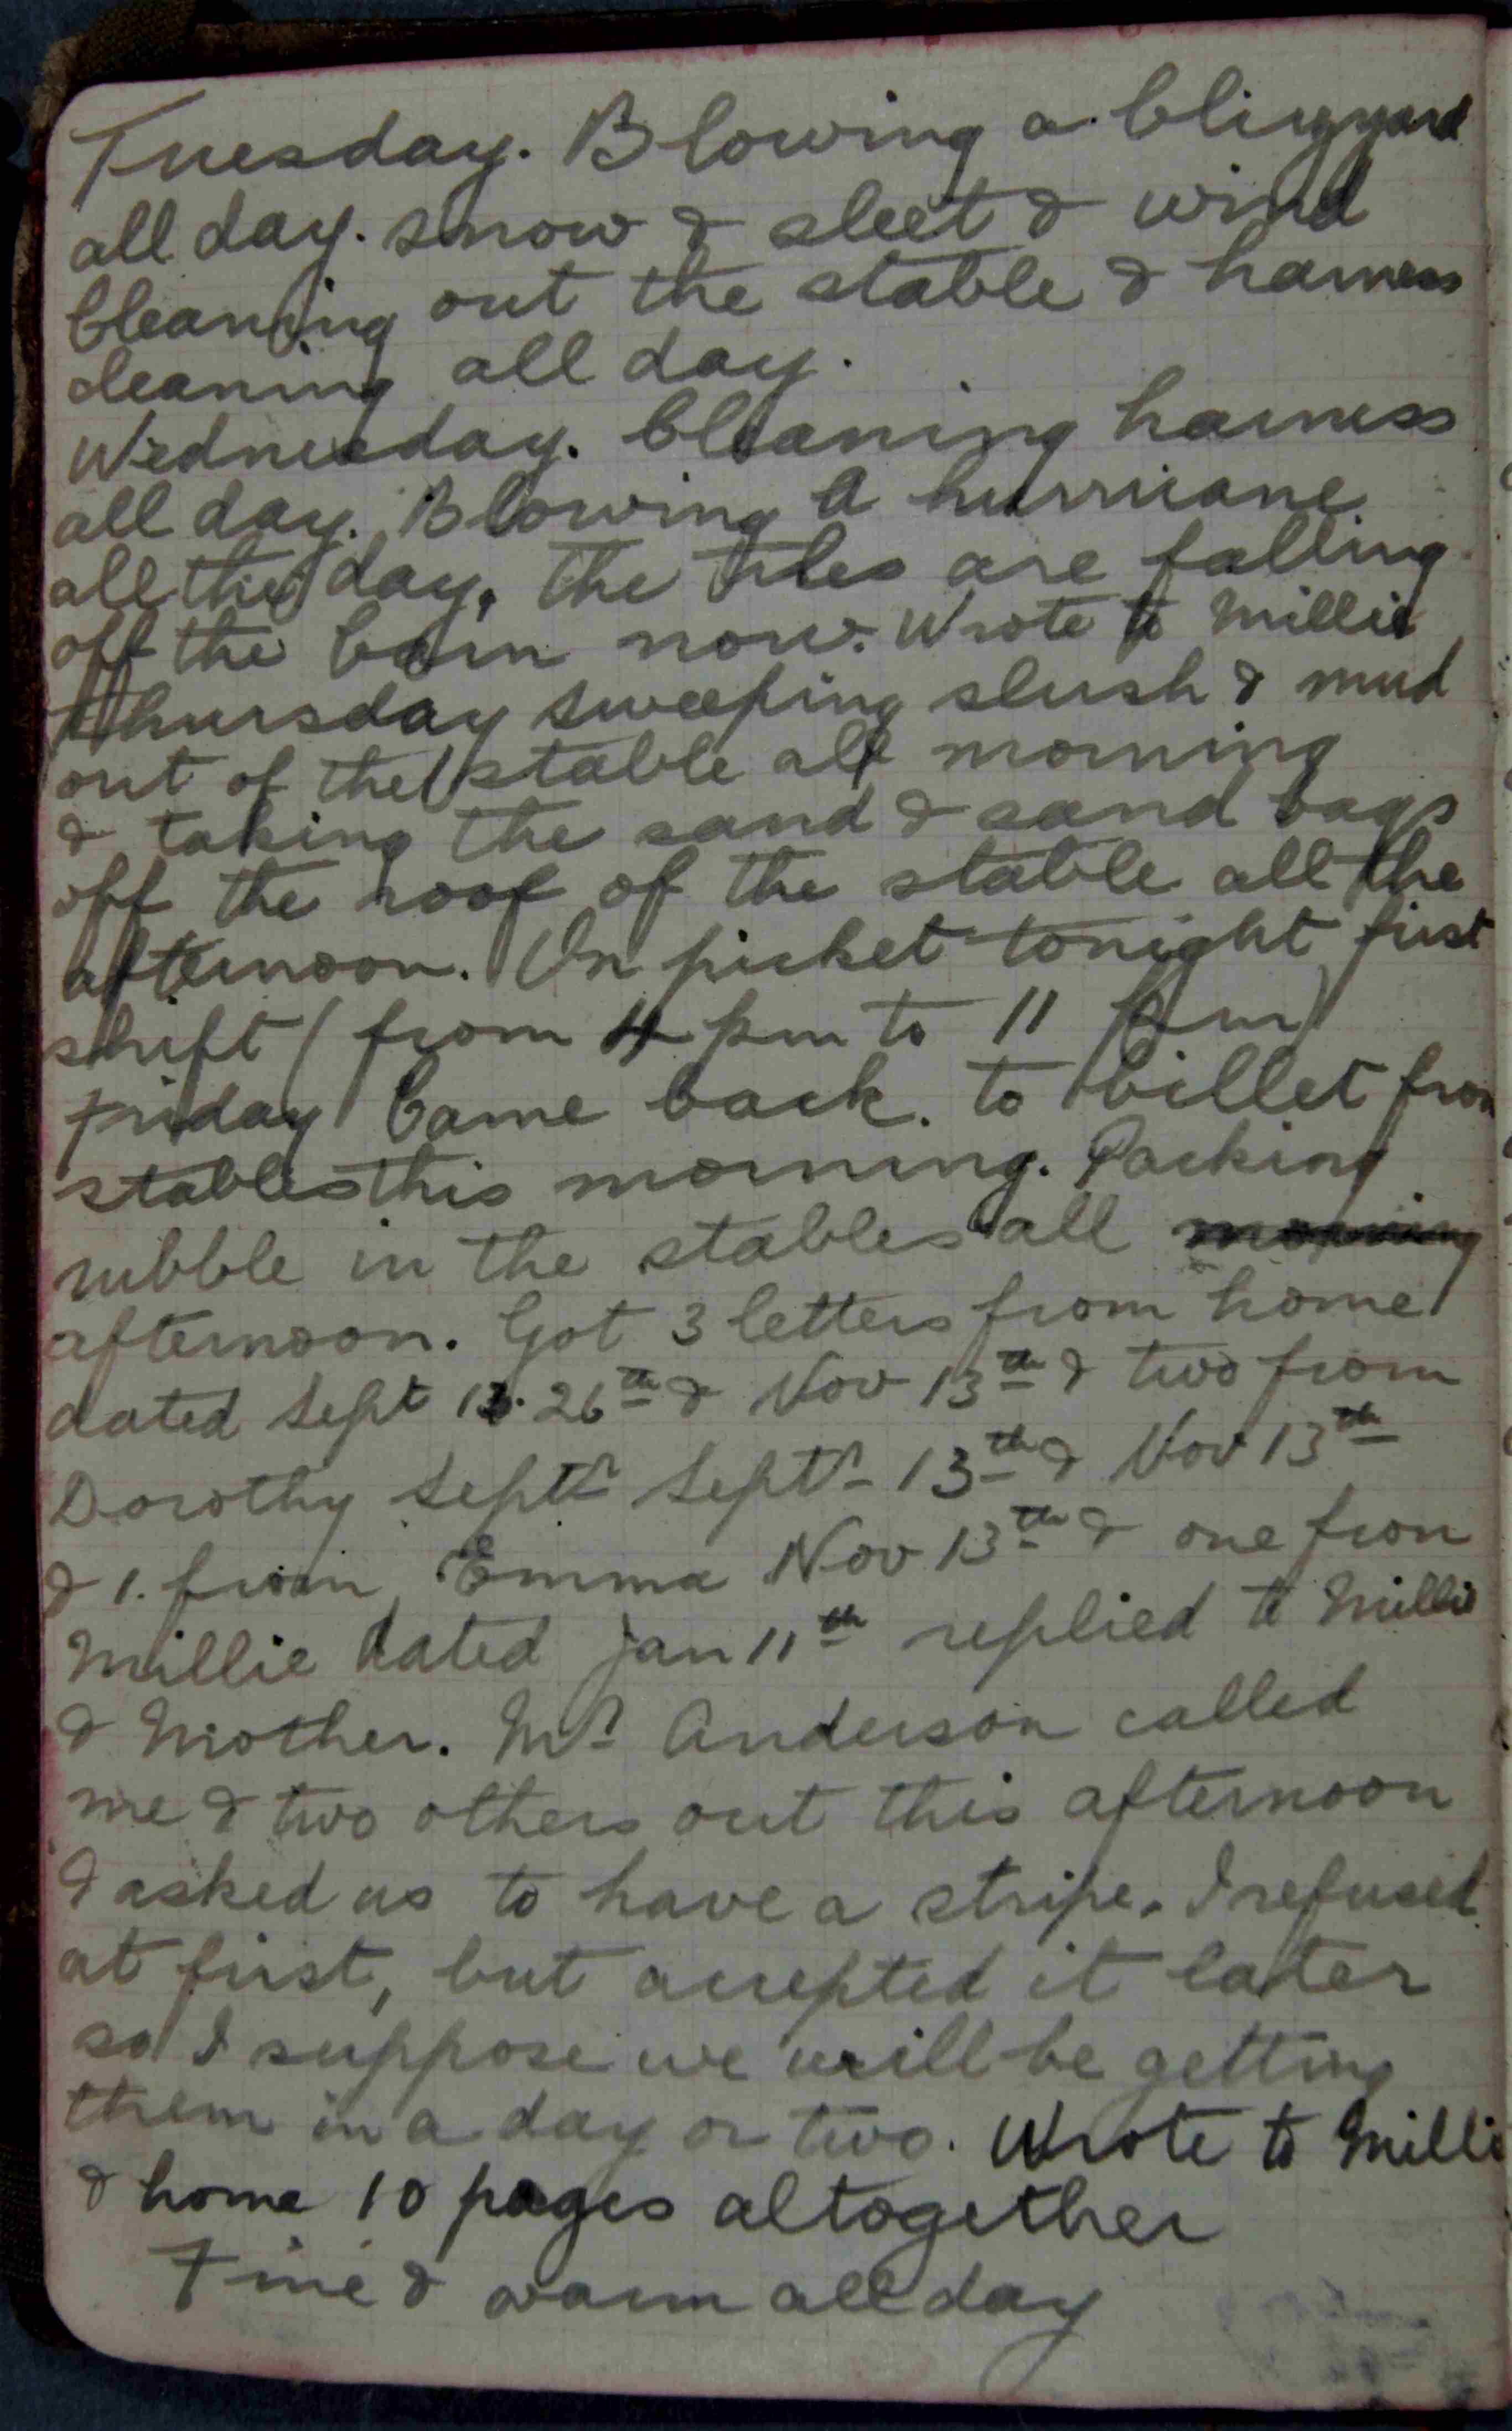 Tuesday. Blowing a blizzard
all day. snow & sleet & wind
Cleaning out the stable & harness
cleaning all day.
Wednesday. Cleaning harness
all day. Blowing a hurricane
all the day, the tiles are falling
off the barn now. Wrote to Millie
Thursday sweeping slush & mud
out of the stable all morning
& taking the sand & sand bags
off the roof of the stable all the
afternoon. On picket tonight first
shift (from 4 pm to 11 pm)
Friday Came back. to billet from
stables this morning. Packing
rubble in the stables all morning
afternoon. Got 3 letters from home
dated Sept 13. 26th & Nov 13th & two from
Dorothy Septr Septr 13th & Nov 13th
& 1. from Emma Nov 13th & one from
Millie dated Jan 11th replied to Millie
& Mother. Mr Anderson called
me & two others out this afternoon
& asked us to have a stripe. I refused
at first, but accepted it later
so I suppose we will be getting
them in a day or two. Wrote to Millie
& home 10 pages altogether
Fine & warm all day